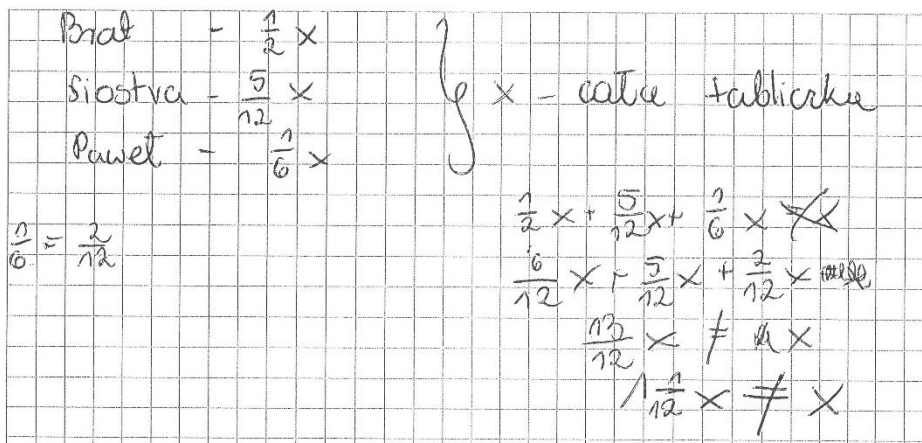 Brat - 1/2 x
Siostra - 5/12 x
Paweł - 1/6 x
x - cała tabliczka
1/6 = 2/12
1/2 x + 5/12 x + 1/6 x
6/12 x + 5/12 x + 2/12 x
13/12 x ≠ x
1 1/12 x ≠ x